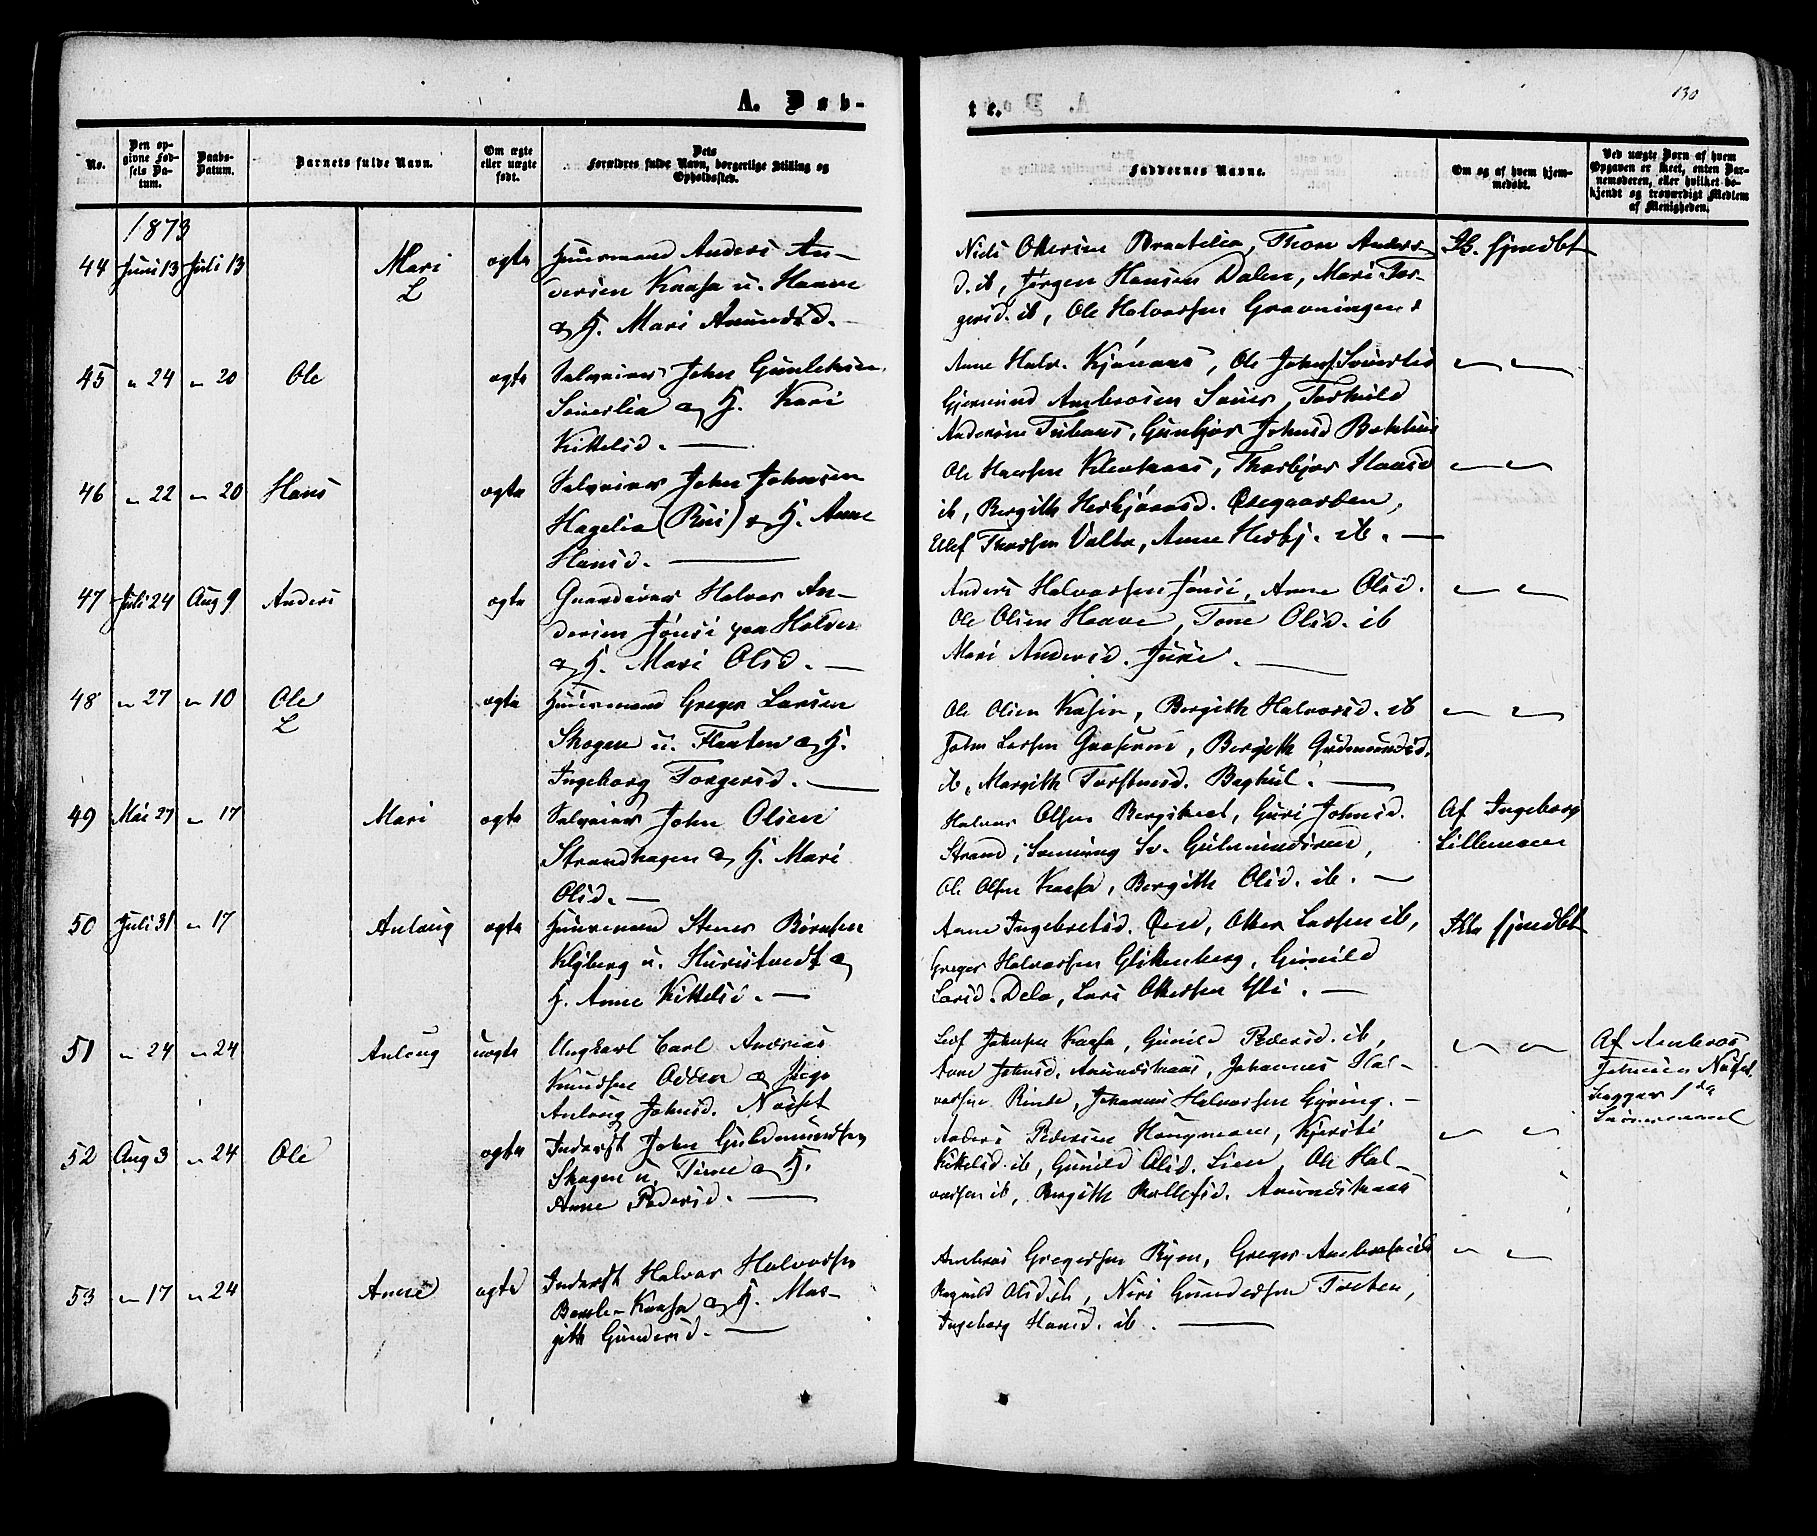 A. Døb-
te.
130
No.
Den op-
givne Fød-
sels Da-
tum.
Daabs-
Datum.
Barnets fulde Navn.
Om ægte
eller uægte
født.
Dets
Forældres fulde Navn, borgerlige Stilling og
Opholdssted.
Faddernes Navne.
Om og af hvem hjem-
medøbt.
Ved uægte Børn af hvem
Opgaven er skeet, enten Bar-
nemoderen, eller hvilket be-
kjendt og troværdigt Medlem
af Menigheden.
1873
44 Juni 13 Juli 13 Mari ægte Huusmand Anders An-
L
dersen Kaasa u. Haave
& H. Mari Amundsd. —
Niels Ottersen Braatelia, Thone Anders-
d. ib, Jørgen Hansen Dalen, Mari Tor-
gersd. ib, Ole Halvorsen Gravningen &
45 " 24 " 20 Ole ægte Selveier John Gunleksen
Souerlia & H. Kari
Kittelsd. —
Anne Halv. Kjønaas, Ole Johns. Souerlia
Gjermund Ambrosen Souer, Torkild
Andersen Tufenes, Gunbjør Johnsd
46 " 22 " 20 Hans ægte Selveier John Johnsen
Hagelia (Rui) & H. Anne
Hansd. —
Ole Hansen Klevhaas, Thorbjør Hansd
ib, Bergith Herbjørnsd. Ødegaarden,
Ulef Thorsen Valto, Anne Herbj. ib. —
47 Juli 24 Aug 9 Anders ægte Gaardeier Halvor An-
dersen Jønsi paa Holder
& H. Mari Olsd. —
Anders Halvorsen Jønsi, Anne Olsd.
Ole Olsen Haave, Tone Olsd. ib
Mari Andersd. Jure. —
48 " 27 " 10 Ole ægte Huusmand Greger Larsen
L
Skogen u. Flaaten & H.
Ingeborg Torgersd. —
Ole Olsen Kasin, Bergith Halvorsd. ib
John Larsen Graserne, Bergith Gudmundsd.
ib, Margith Torstensd. Baghul. —
49 Mai 27 " 17 Mari ægte Selveier John Olsen
Strandhagen & H. Mari
Olsd. —
Halvor Olsen Bergskaal, Guri Johnsd.
Strand, Sv. Gulmundsrue,
Ole Olsen Kaasa, Bergith Olsd. ib. —
Af Ingeborg
Lillemoen
50 Juli 31 " 17 Anlaug ægte Huusmand Stener Børnsen
Klyberg u. Hurustvedt &
H. Anne Kittelsd. —
Anne Ingebretsd. Øen, Otter Larsen ib,
Greger Halvorsen Glittenberg, Gunild
Larsd. Dela, Lars Ottersen Yli. —
51 " 24 " 24 Anlaug uægte Ungkarl Carl Andreas
Knudsen Odden & Pige
Anlaug Johnsd. Naaset
Leif Johnsen Kaasa, Gunild Pedersd. ib,
Anne Johnsd. Amundshaas, Johannes Hal-
vorsen Rinde, Johannes Halvorsen Gjøring. —
Af Ambros
Johnsen
52 Aug 3 " 24 Ole ægte Inderst John Guldmundsen
Skogen u. Tinne & H.
Anne Pedersd. —
Anders Pedersen Haugmoen, Kjersti
Kittelsd. ib, Gunild Olsd. Lien, Ole Hal-
vorsen ib, Bergith Rollefsd. Amundshaas
53 " 17 " 24 Anne ægte Inderst Halvor Halvorsen
Kaasa & H. Mar-
gith Gundersd. —
Ambros Gregersen Ryen, Greger Ambrosen ib
Ragnild Olsd. ib, Niri Gundersen Treten,
Ingeborg Hansd. ib. —